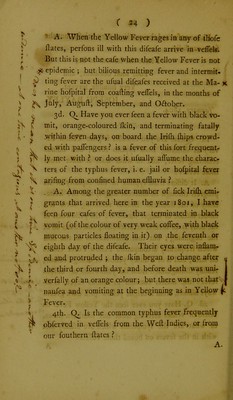 ( 24 )
A. When the Yellow Fever rages in any of those
states, persons ill with this disease arrive in vessels.
But this is not the case when the Yellow Fever is not
epidemic; but bilious remitting fever and intermit-
ting fever are the usual diseases received at the Ma-
rine hospital from coasting vessels, in the months of
July, August, September, and October.
3d. Q. Have you ever seen a fever with black vo-
mit, orange-coloured skin, and terminating fatally
within seven days, on board the Irish ships crowd-
ed with passengers? is a fever of this sort frequent-
ly met with? or does it usually assume the charac-
ters of the typhus fever, i. e. jail or hospital fever
arising from confined human effluvia?
A. Among the greater number of sick Irish emi-
grants that arrived here in the year 1801, I have
seen four cases of fever, that terminated in black
vomit (of the colour of very weak coffee, with black
mucous particles floating in it) on the seventh or
eighth day of the disease. Their eyes were inflam-
ed and protruded; the skin began to change after
the third or fourth day, and before death was uni-
versally of an orange colour; but there was not that
nausea and vomiting at the beginning as in Yellow
Fever.
4th. Q. Is the common typhus fever frequently
observed in vessels from the West Indies, or from
our southern states?
A.